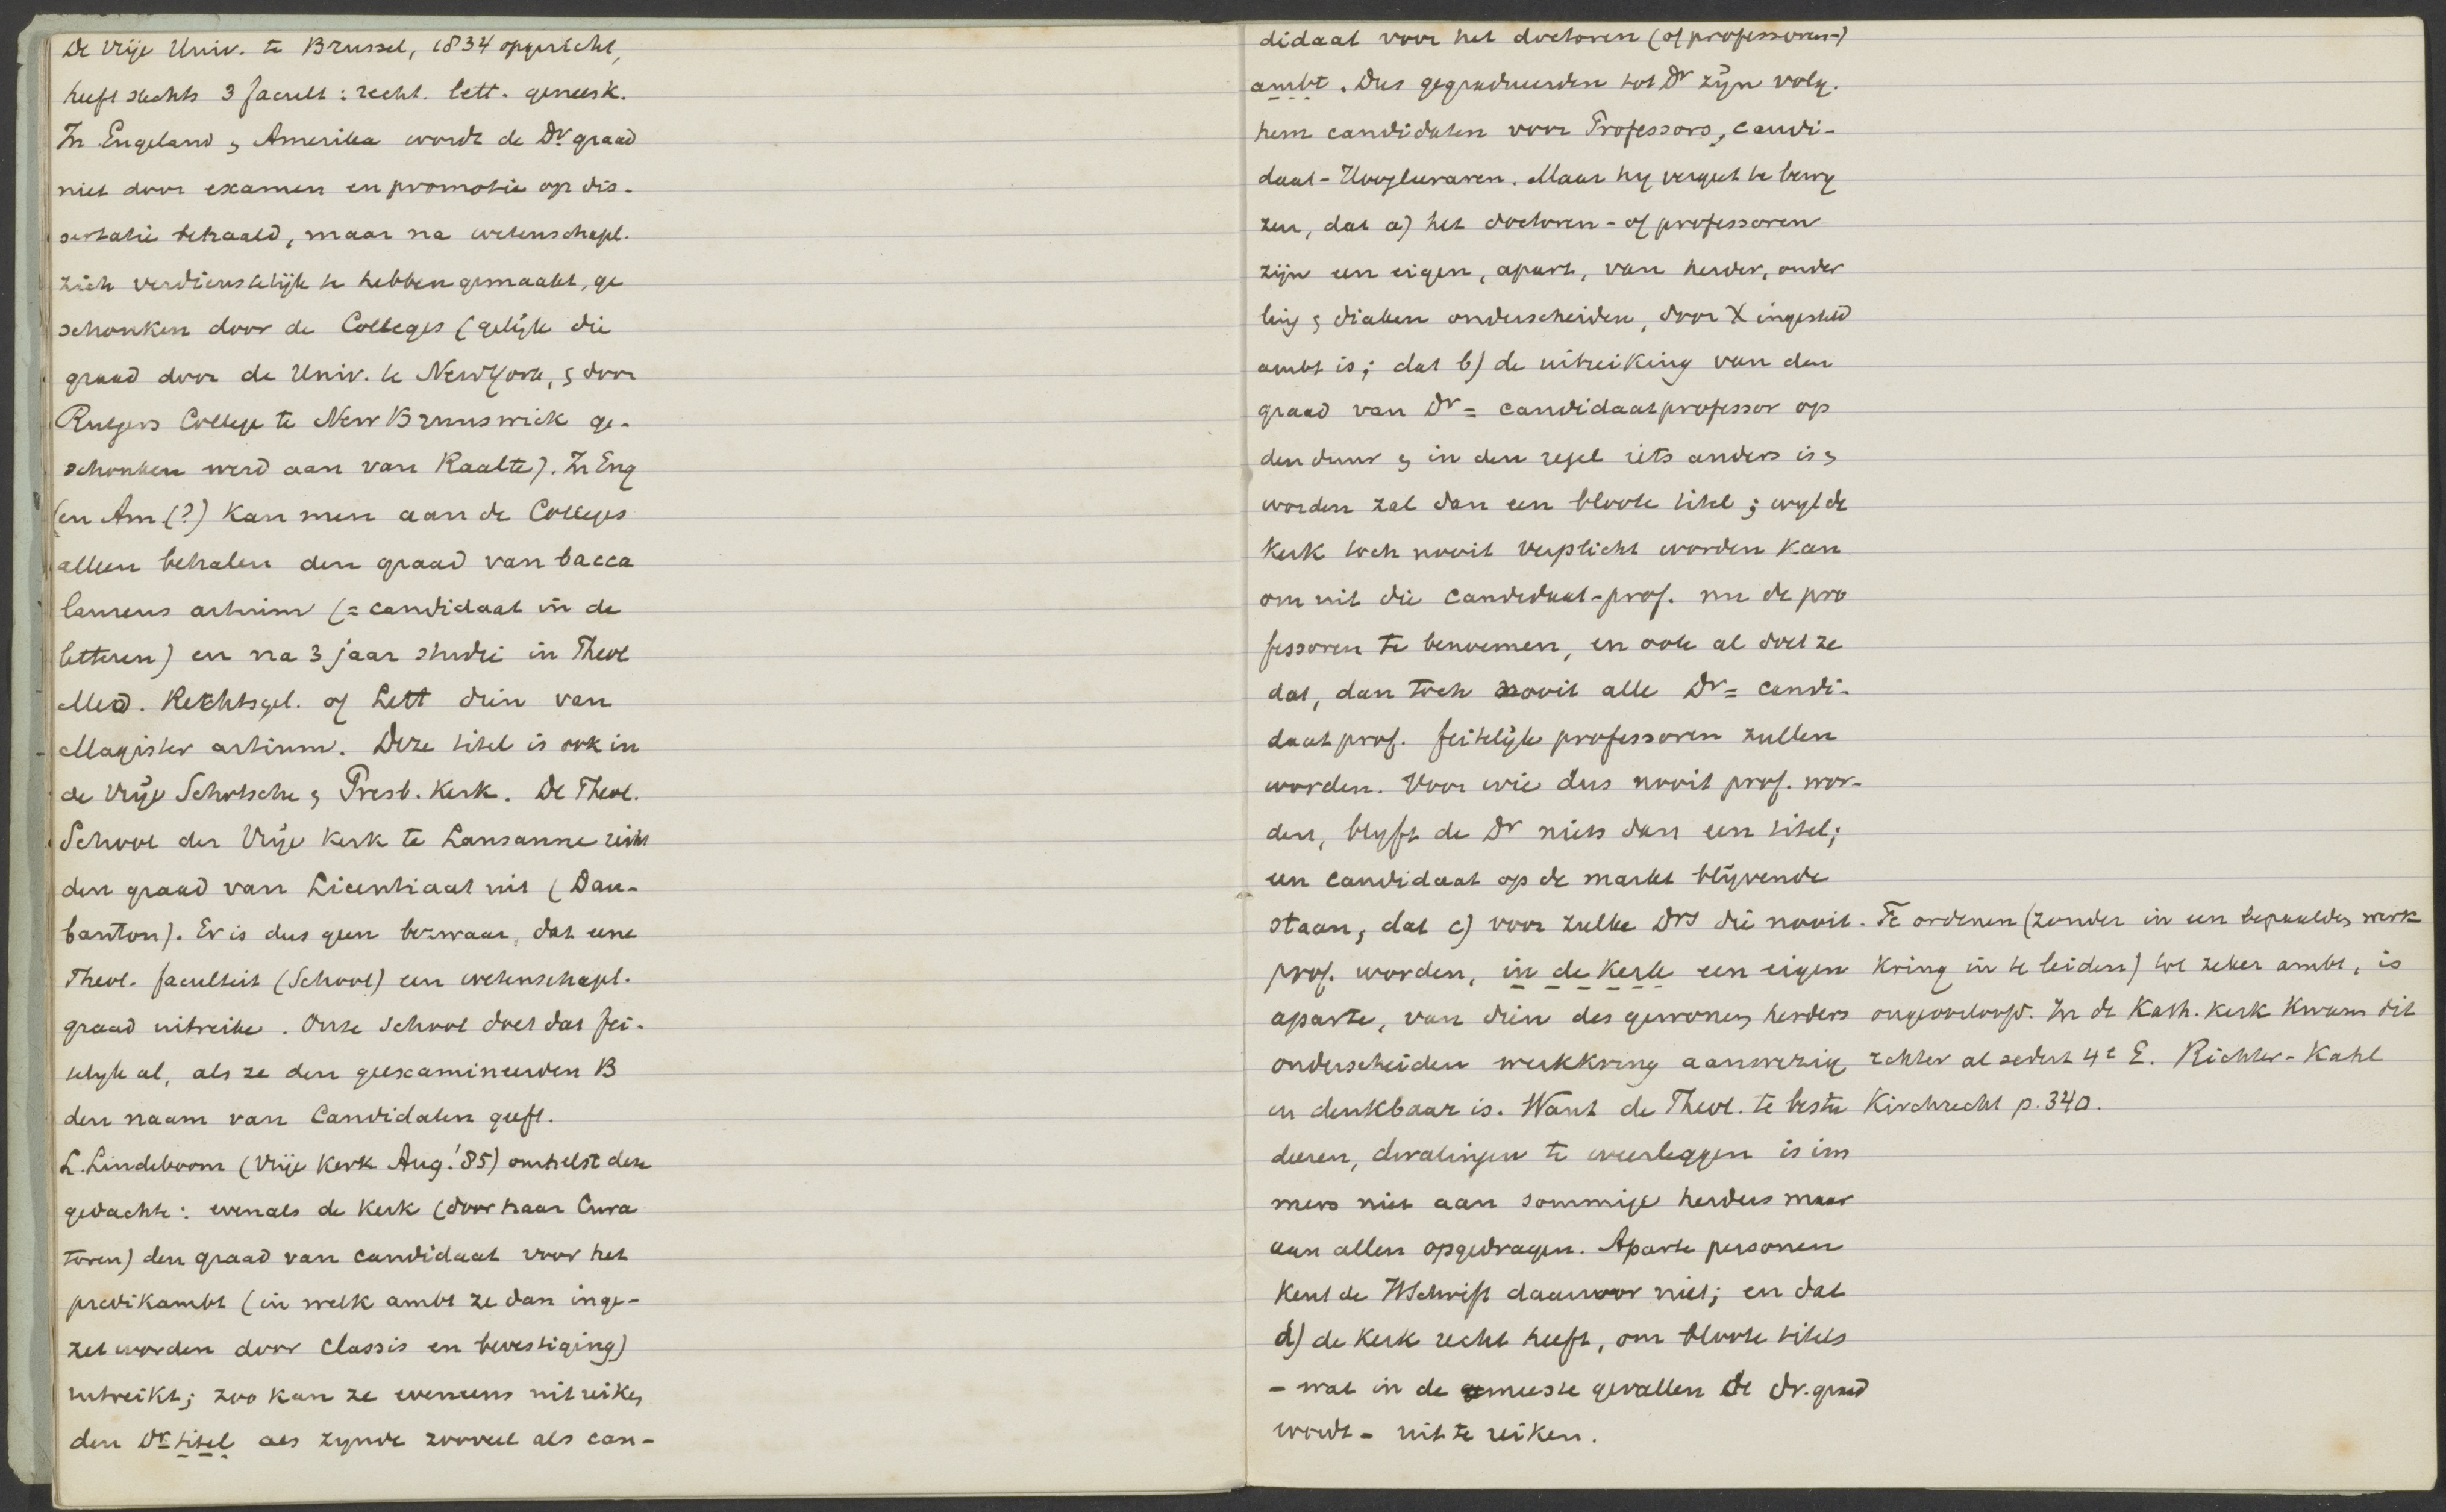 De Vrije Univ. te Brussel, 1834 opgericht,
heeft slechts 3 facult: recht. lett. geneesk.
In Engeland & Amerika wordt de Dr. graad
niet door examen en promotie op dis-
sertatie behaald, maar na wetenschapl.
zich verdienstelijk te hebben gemaakt, ge
schonken door de Colleges (gelijk die
graad door de Univ. te NewYork, & door
Rutgers College te New Brunswick ge-
schonken werd aan van Raalte). In Eng
(en Am (?) kan men aan de Colleges
alleen behalen den graad van bacca
laureus artium (= candidaat in de
letteren) en na 3 jaar studie in Theol
Med. Rechtsgel. of Lett dien van
Magister artium. Deze titel is ook in
de Vrije Schotsche & Presb. Kerk. De Theol.
School der Vrije Kerk te Lausanne reikt
den graad van Licentiaat uit (Dau-
banton). Er is dus geen bezwaar, dat eene
Theol. faculteit (School) een wetenschapl.
graad uitreike. Onze School doet dat fei-
telijk al, als ze den geexamineerden B
den naam van Candidaten geeft.
L. Lindeboom (Vrije Kerk Aug. '85) omhelst deze
gedachte: evenals de Kerk (door haar Cura
toren) den graad van candidaat voor het
predikambt (in welk ambt ze dan inge-
zet worden door Classis en bevestiging)
uitreikt; zoo kan ze eveneens uitreiken
den Dr titel als zynde zooveel als can-
didaat voor het doctoren (of professoren-)
ambt. Dus gegradueerden tot Dr zijn volg.
hem candidaten voor Professors, candi-
daat-Hoogleeraren. Maar hy vergeet te bewy
zen, dat a) het doctoren- of professoren
zijn een eigen, apart, van herder, ouder
ling & diaken onderscheiden, door X ingesteld
ambt is; dat b) de uitreiking van den
graad van Dr = candidaatprofessor op
den duur & in den regel iets anders is &
worden zal dan een bloote titel; wyl de
Kerk toch nooit verplicht worden kan
om uit die candidaat-prof. nu de pro
fessoren te benoemen, en ook al doet ze
dat, dan toch nooit alle Dr = candi-
daatprof. feitelijk professoren zullen
worden. Voor wie dus nooit prof. wor-
den, blyft de Dr niets dan een titel;
een candidaat op de markt blijvende
staan, dat c) voor zulke Drs die nooit
prof. worden, in de Kerk een eigen
aparte, van dien des gewonen herders
onderscheiden werkkring aanwezig
en denkbaar is. Want de Theol. te bestu
deeren, dwalingen te weerleggen is im
mers niet aan sommige herders maar
aan allen opgedragen. Aparte personen
kent de HSchrift daarvoor niet; en dat
d) de Kerk recht heeft, om bloote titels
- wat in de meeste gevallen de dr. graad
wordt - uit te reiken.
Te ordenen (zonder in een bepaalden werk
kring in te leiden) tot zeker ambt, is
ongeoorloofd. In de Kath. Kerk kwam dit
echter al sedert 4e E. Richter-Kahl
Kirchrecht p. 340.